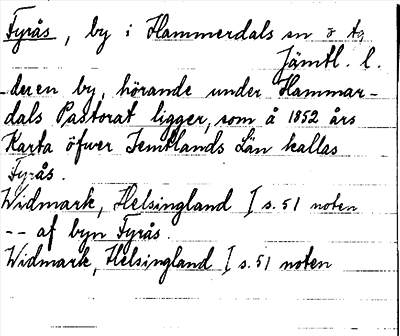 Fyrås, by i Hammerdals sn o tg
Jämtl. l.
- deren by, hörande under Hammar-
dals Pastorat ligger, som å 1852 års
Karta öfwer Jemtlands Län kallas
Fyrås.
Widmark, Helsingland I s. 51 noten
-- af byn Fyrås.
Widmark, Helsingland I s. 51 noten